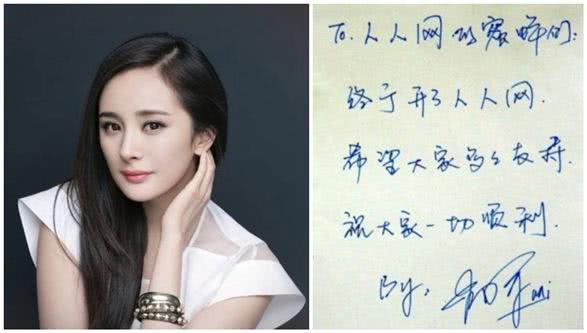 To. 人人网的蜜蜂们:
终于开了人人网.
希望大家多多支持.
祝大家一切顺利.
By: mi